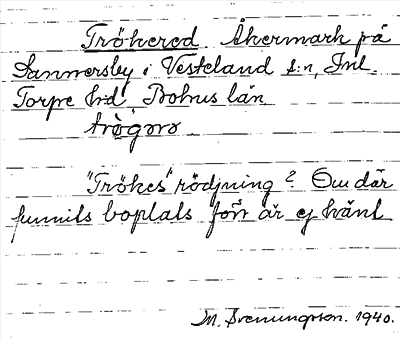 Trökered. Åkermark på
Sannersby i Västeland s:n, Inl.
Torpe hd Bohus län
trö̀gœrœ
"Trökes" rödjning? Om där
funnits boplats förr är ej känt
M. Svenungsson. 1940.